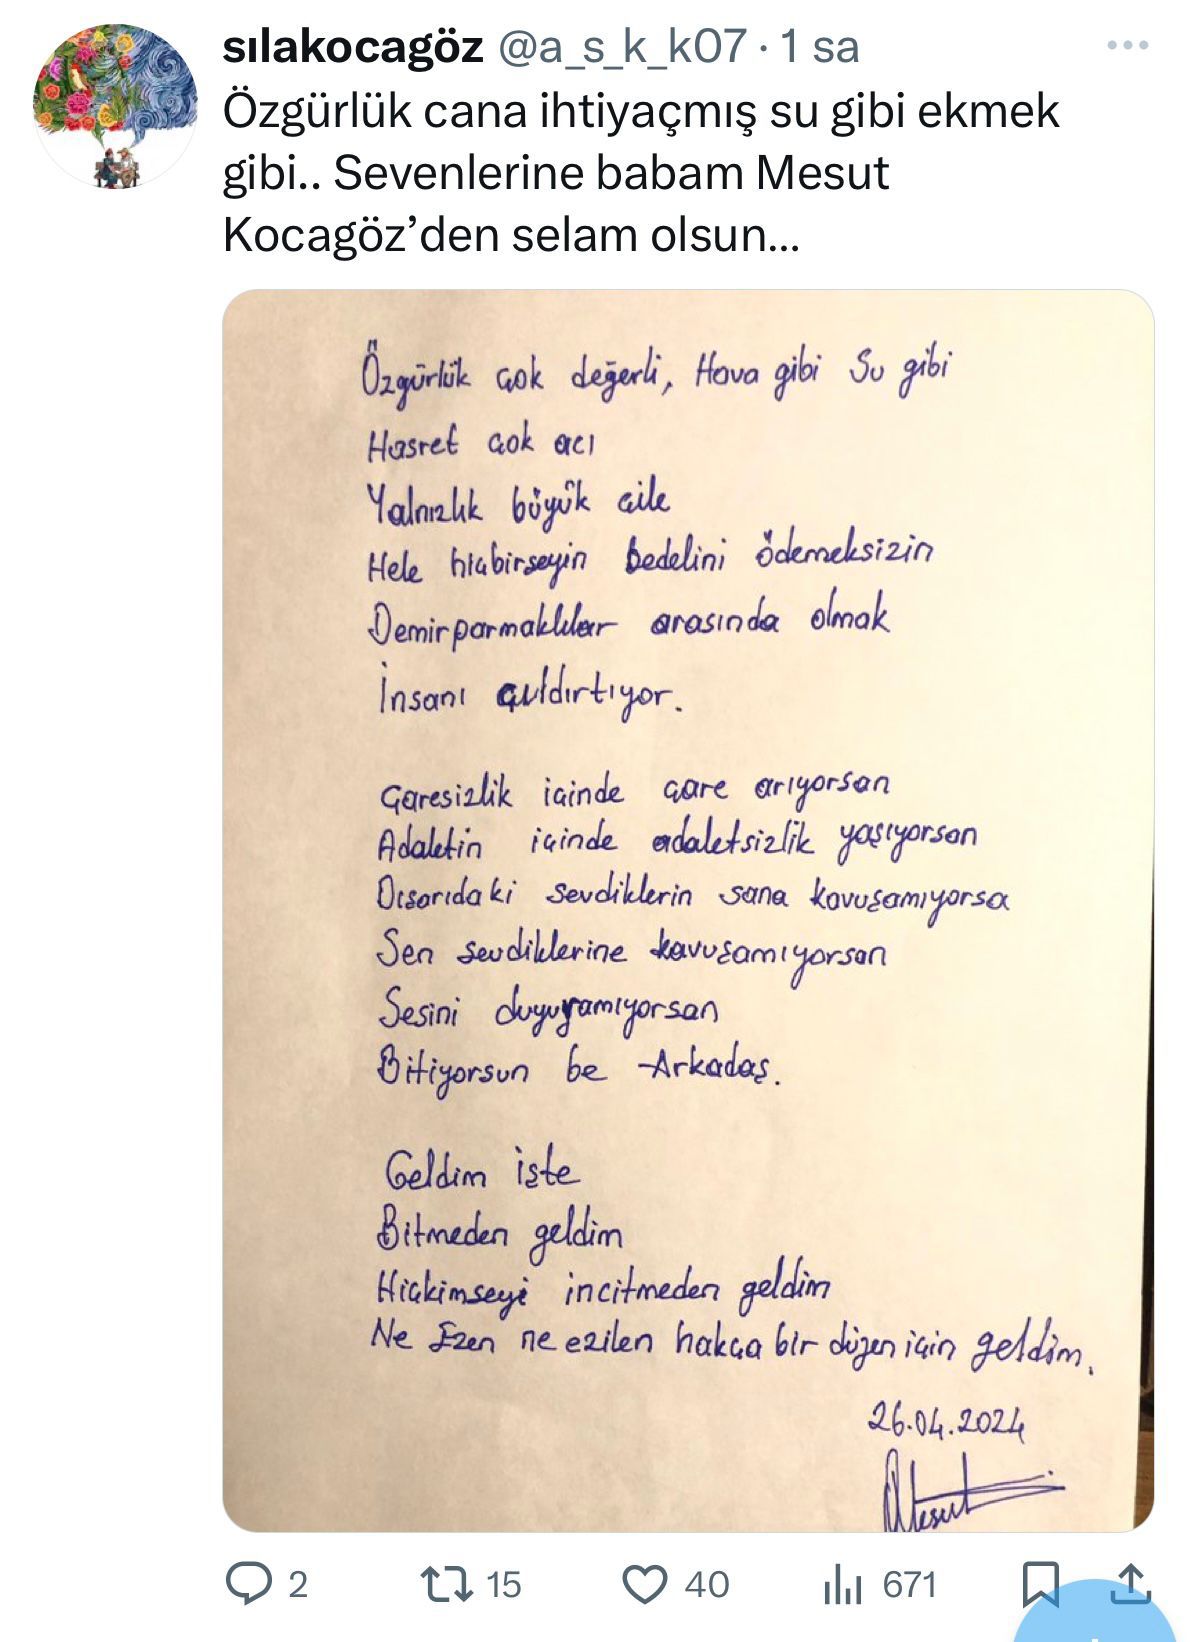 sılakocagöz @a_s_k_k07 · 1 sa
Özgürlük cana ihtiyaçmış su gibi ekmek
gibi.. Sevenlerine babam Mesut
Kocagöz’den selam olsun...
Özgürlük çok değerli, Hava gibi Su gibi
Hasret çok acı
Yalnızlık büyük çile
Hele hiçbirseyin bedelini ödemeksizin
Demirparmaklılar arasında olmak
İnsanı çıldırtıyor.
Çaresizlik içinde çare arıyorsan
Adaletin içinde adaletsizlik yaşıyorsan
Dısarıdaki sevdiklerin sana kavuşamıyorsa
Sen sevdiklerine kavuşamıyorsan
Sesini duyuramıyorsan
Bitiyorsun be Arkadaş.
Geldim işte
Bitmeden geldim
Hiçkimseyi incitmeden geldim
Ne Ezen ne ezilen hakça bir düzen için geldim.
26.04.2024
Mesut
2 15 40 671